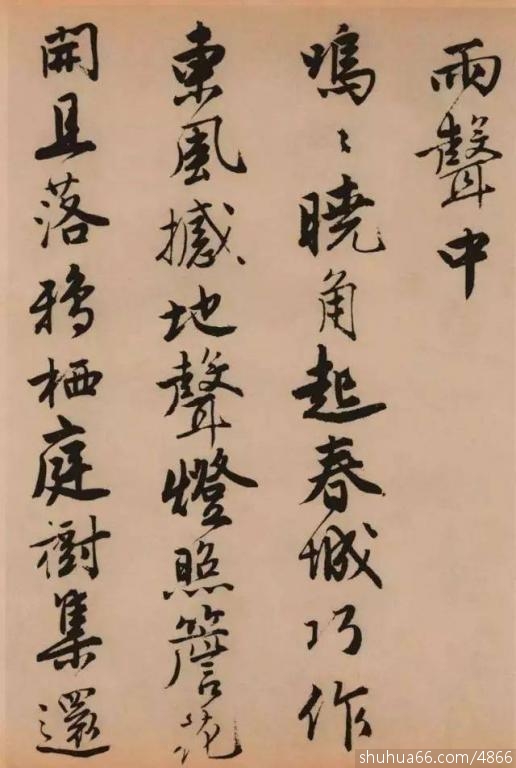 雨聲中
鳴〻曉角起春城巧作
東風撼地聲燈照簷花
開且落鴉栖庭樹集還
shuhua66.com/4866